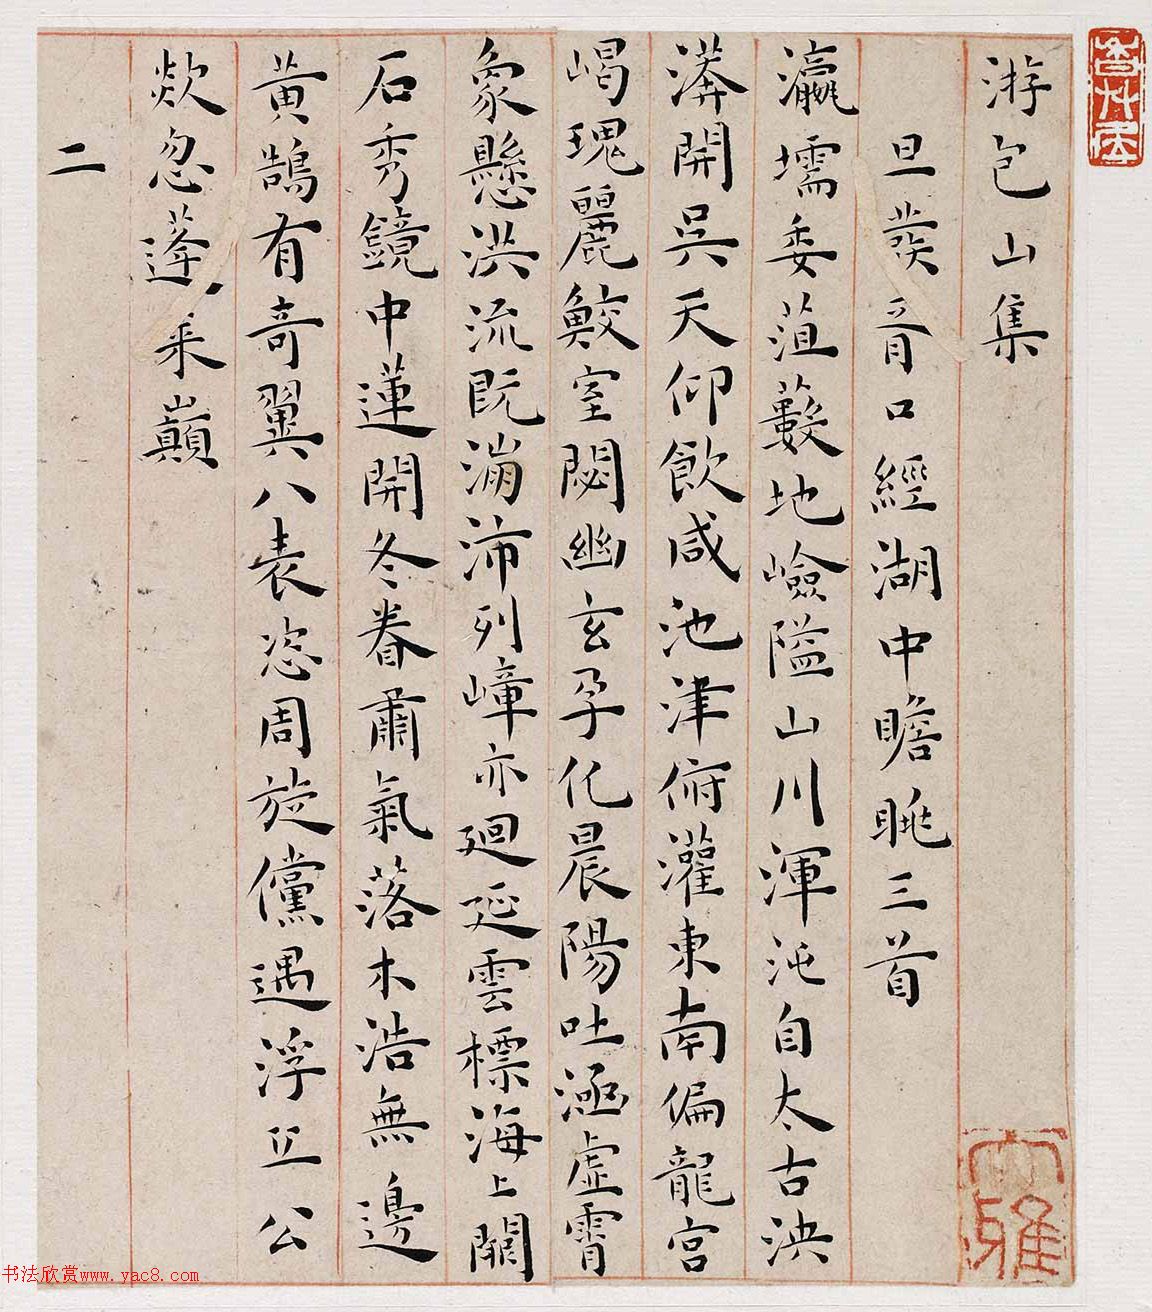 游包山集
旦發胥口經湖中瞻眺三首
瀛壖委菹藪地嶮隘山川渾沌自太古泱
漭開吳天仰飲咸池津俯灌東南偏龍宮
嵑瑰麗鮫室閟幽玄孕化晨陽吐涵虛霄
象懸洪流既瀰沛列嶂亦迴延雲標海上闕
石秀鏡中蓮開冬眷肅氣落木浩無邊
黃鵠有奇翼八表恣周旋儻遇浮丘公
欻忽蓬萊巔
二
書法欣赏www.yac8.com